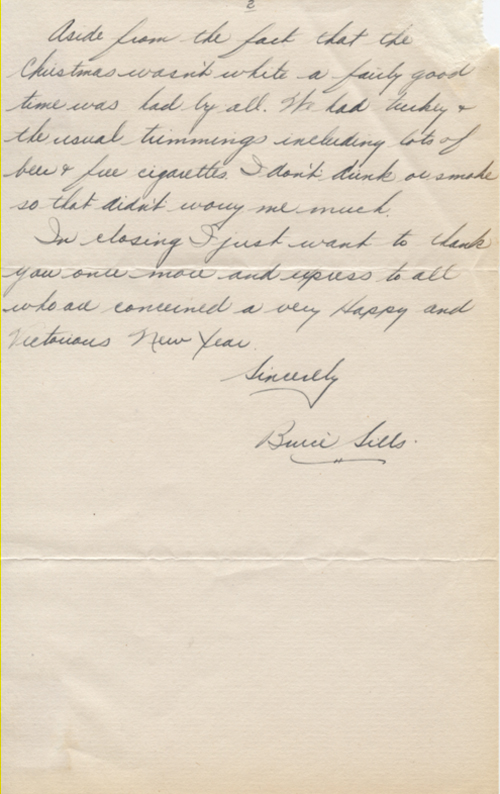 2
Aside from the fact that the
Christmas wasn't white a fairly good
time was had by all. We had turkey &
the usual trimmings including lots of
beer & free cigarettes. I don't drink or smoke
so that didn't worry me much.
In closing I just want to thank
you once more and express to all
who are concerned a very Happy and
Victorious New Year.
Sincerely
Sills.